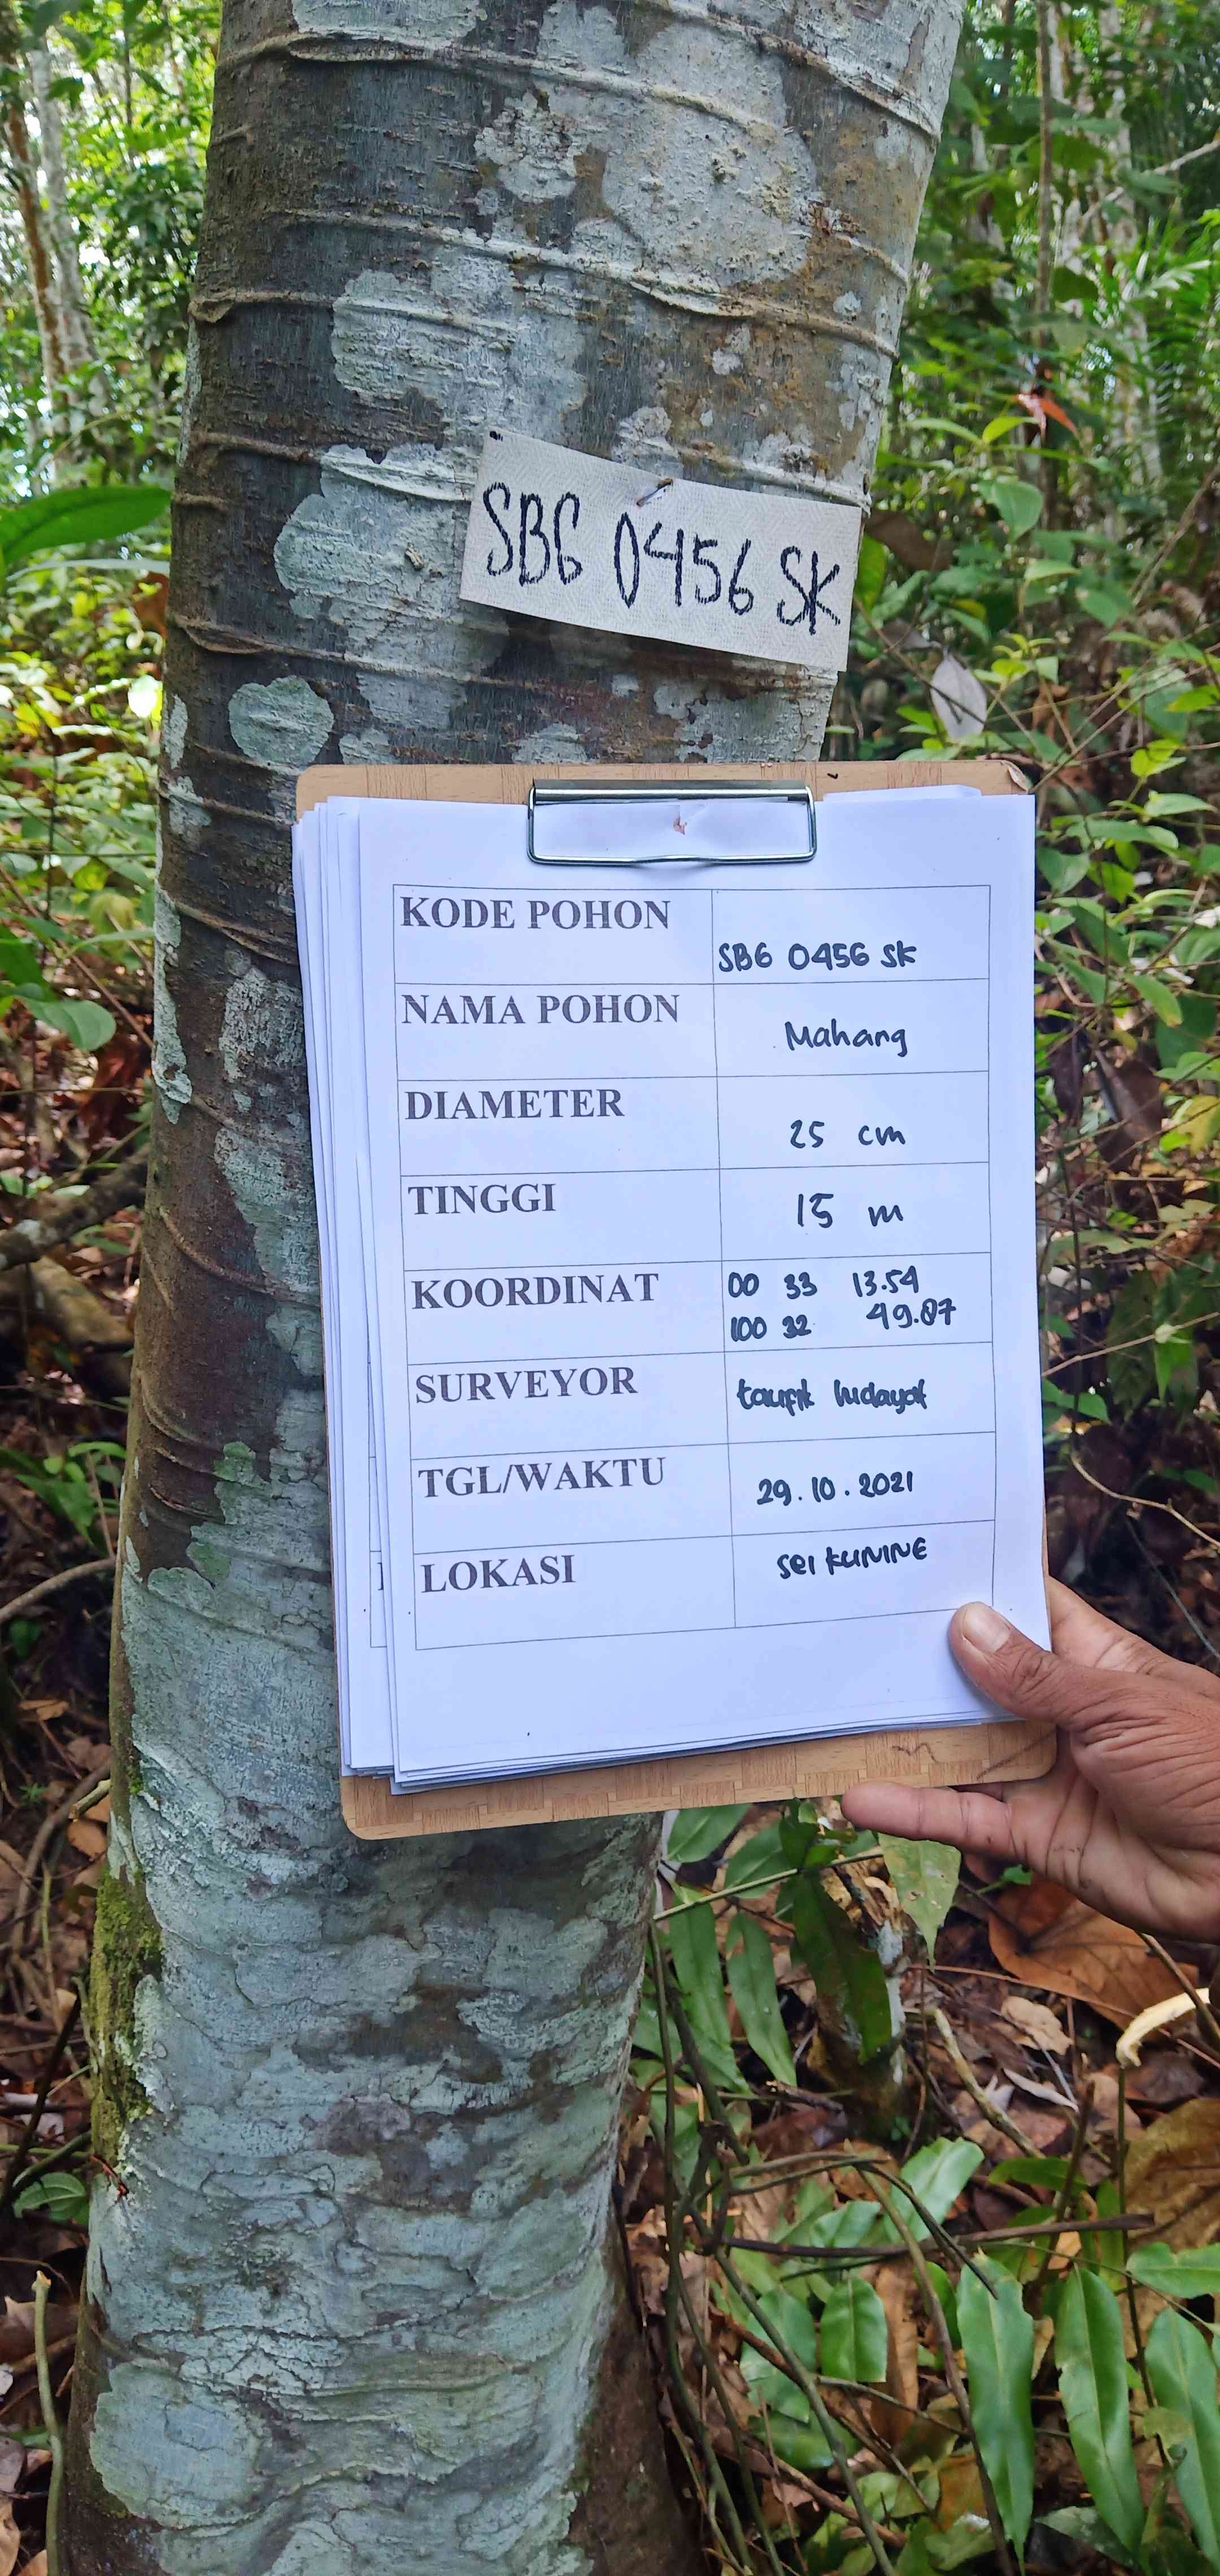 SBG 0456 SK
KODE POHON
SBG 0456 SK
NAMA POHON
Mahang
DIAMETER
25 cm
TINGGI
15 m
KOORDINAT
00 33 13.54
100 32 49.07
SURVEYOR
taufik hidayat
TGL/WAKTU
29.10.2021
LOKASI
sei KUNINE